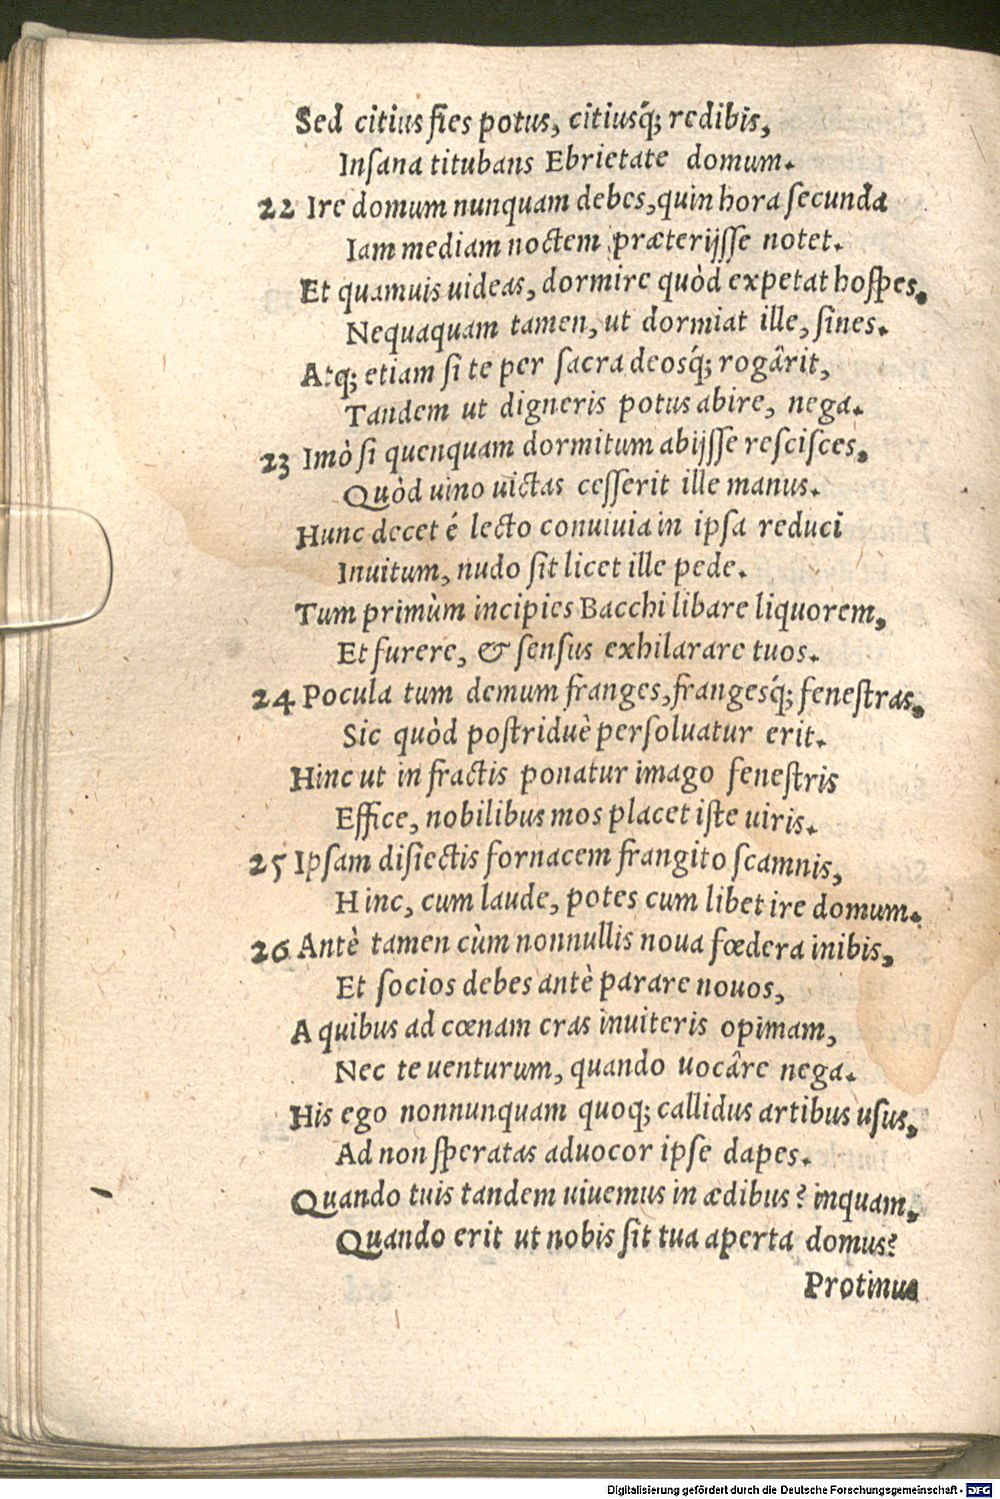 Sed citius fies potus, citiusq́; redibis,
Insana titubans Ebrietate domum.
22 Ire domum nunquam debes, quin hora secunda
Iam mediam noctem præterijsse notet.
Et quamuis uideas, dormire quòd expetat hospes,
Nequaquam tamen, ut dormiat ille, sines.
Atq; etiam si te per sacra deosq́; rogârit,
Tandem ut digneris potus abire, nega.
23 Imò si quenquam dormitum abijsse rescisces,
Quòd uino uictas cesserit ille manus.
Hunc decet é lecto conuiuia in ipsa reduci
Inuitum, nudo sit licet ille pede.
Tum primùm incipies Bacchi libare liquorem,
Et furere, & sensus exhilarare tuos.
24 Pocula tum demum franges, frangesq́; fenestras,
Sic quòd postriduè persoluatur erit.
Hinc ut in fractis ponatur imago fenestris
Effice, nobilibus mos placet iste uiris.
25 Ipsam disiectis fornacem frangito scamnis,
Hinc, cum laude, potes cum libet ire domum.
26 Antè tamen cùm nonnullis noua fœdera inibis,
Et socios debes antè parare nouos,
A quibus ad cœnam cras inuiteris opimam,
Nec te uenturum, quando uocâre nega.
His ego nonnunquam quoq; callidus artibus usus,
Ad non speratas aduocor ipse dapes.
Quando tuis tandem uiuemus in ædibus? inquam,
Quando erit ut nobis sit tua aperta domus?
Protinus
Digitalisierung gefördert durch die Deutsche Forschungsgemeinschaft - DFG